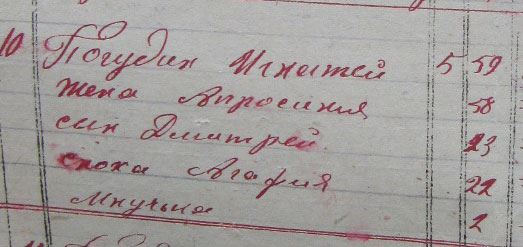 10 Погудин Игнатей 5 59
жена Апросиния 58
сын Дмитрей 23
сноха Агафия 22
Мнучька 2